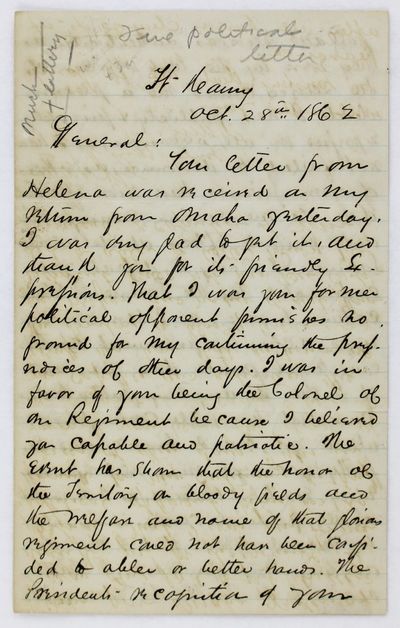 Fine political
letter
Ft Kearny
Oct. 28th 1862
General:
Your letter from
Helena was received on my
return from Omaha yesterday.
I was very glad to get it, and
thank you for its friendly Ex-
pressions. That I was your former
political opponent furnishes no
ground for my continuing the prej-
udices of other days. I was in
favor of your being the Colonel of
our Regiment because I believed
you capable and patriotic. The
Event has shown that the honor of
the Territory on bloody fields and
the welfare and name of that glorious
regiment could not have been confi-
ded to abler or better hands. The
Presidents recognition of your